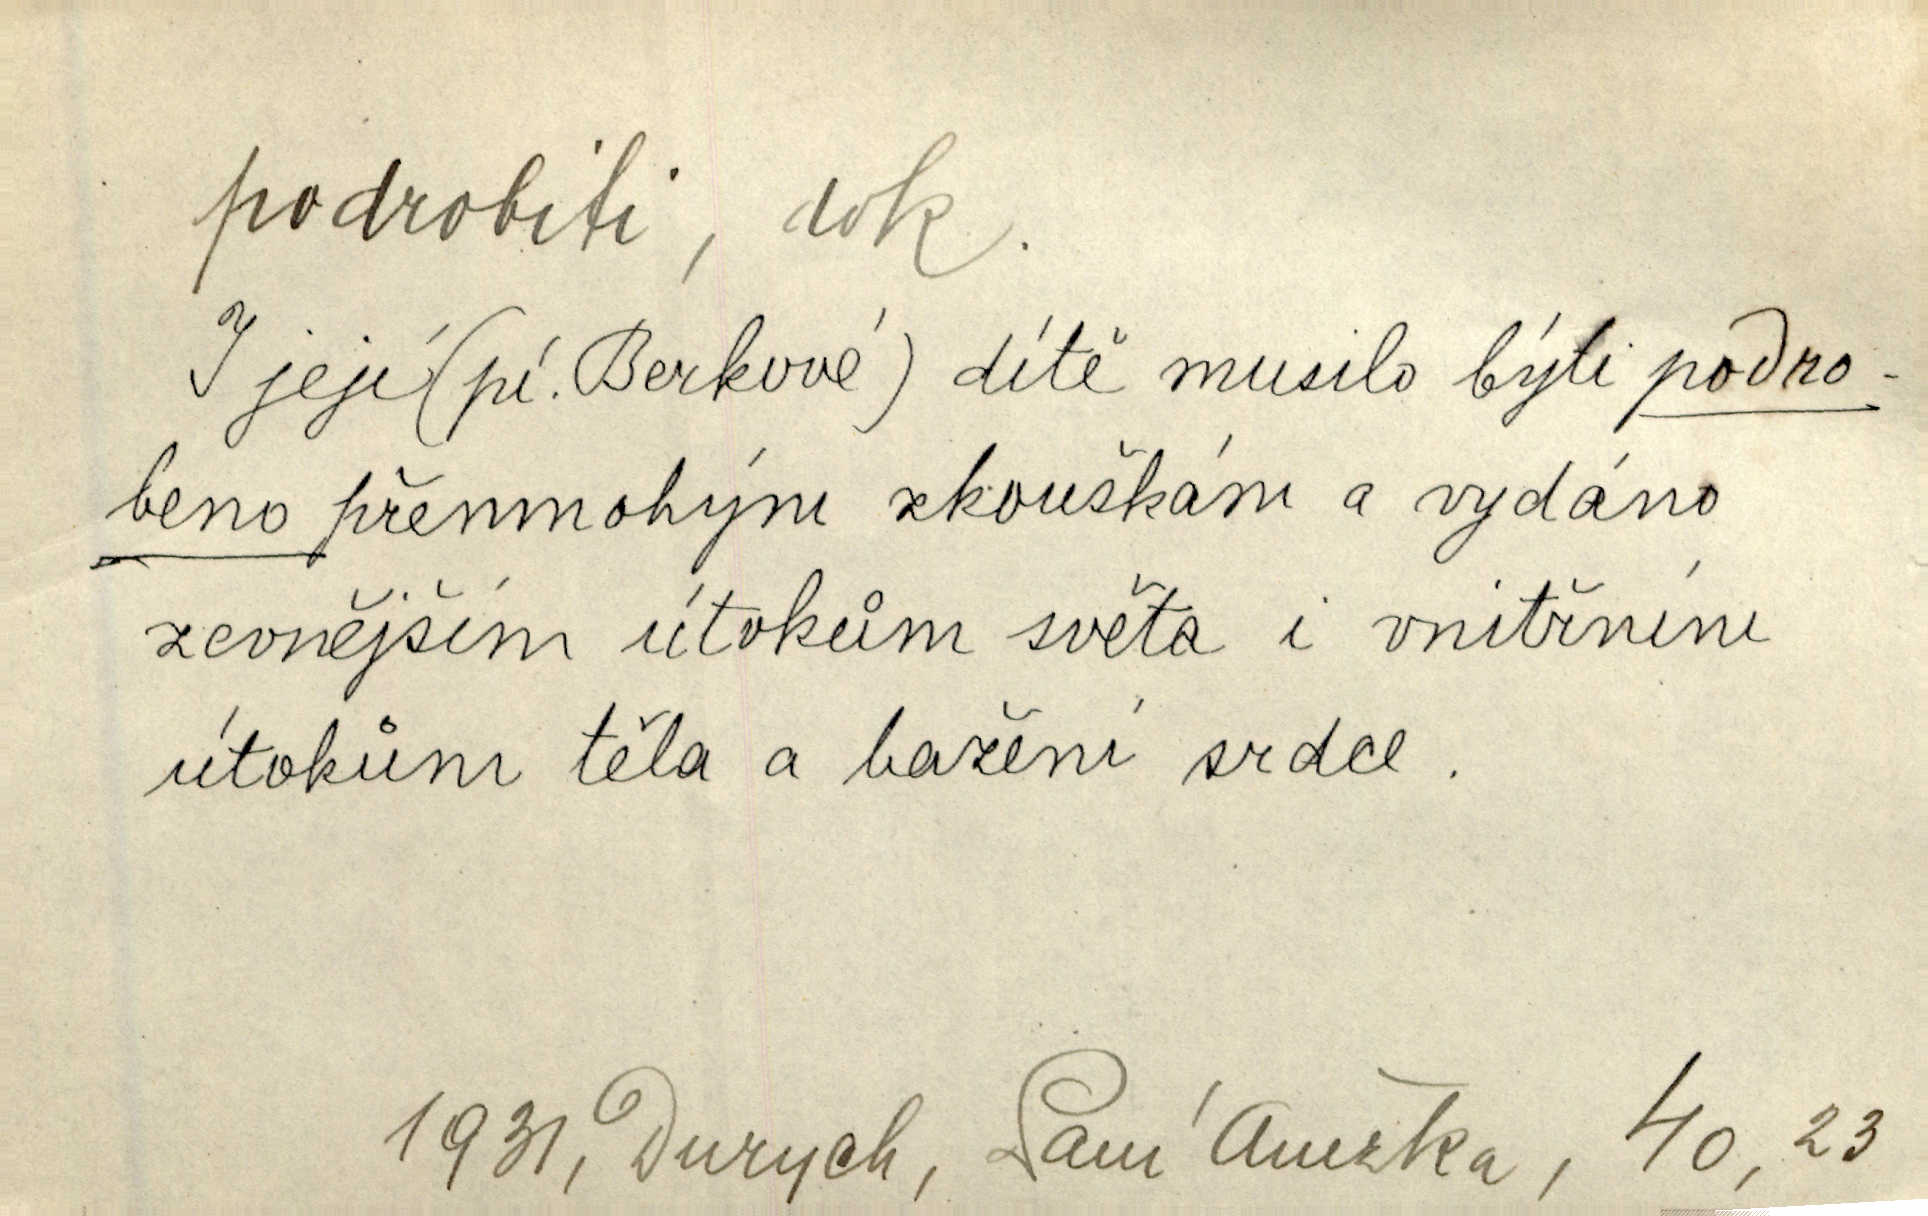 podrobiti, dok.
I její (pí. Berkové) dítě musilo býti podro-
beno přemnohým zkouškám a vydáno
zevnějším útokům světa i vnitřním
útokům těla a bažení srdce.
1931, Durych, Paní Anežka, 40, 23